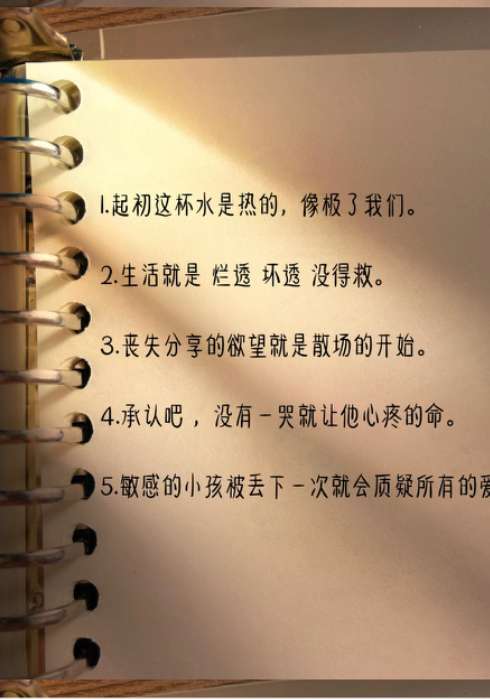 1.起初这杯水是热的，像极了我们。
2.生活就是 烂透 坏透 没得救。
3.丧失分享的欲望就是散场的开始。
4.承认吧，没有一哭就让他心疼的命。
5.敏感的小孩被丢下一次就会质疑所有的爱